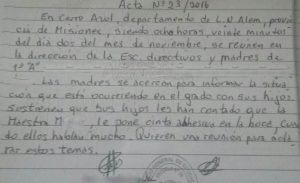 Acta Nº 23/2016
En Cerro Azul, departamento de L.N Alem, provin
cia de Misiones, siendo ocho horas, veinte minutos
del día dos del mes de noviembre, se reunen en
la dirección de la Esc. directivos y madres de
1º "A".
Las madres se acercan para informar la situa
ción que está ocurriendo en el grado con sus hijos.
Sostienen que sus hijos les han contado que la
Maestra M le pone cinta adhesiva en la boca, cuan
do ellos hablan mucho. Quieren una reunión para acla
rar estos temas.